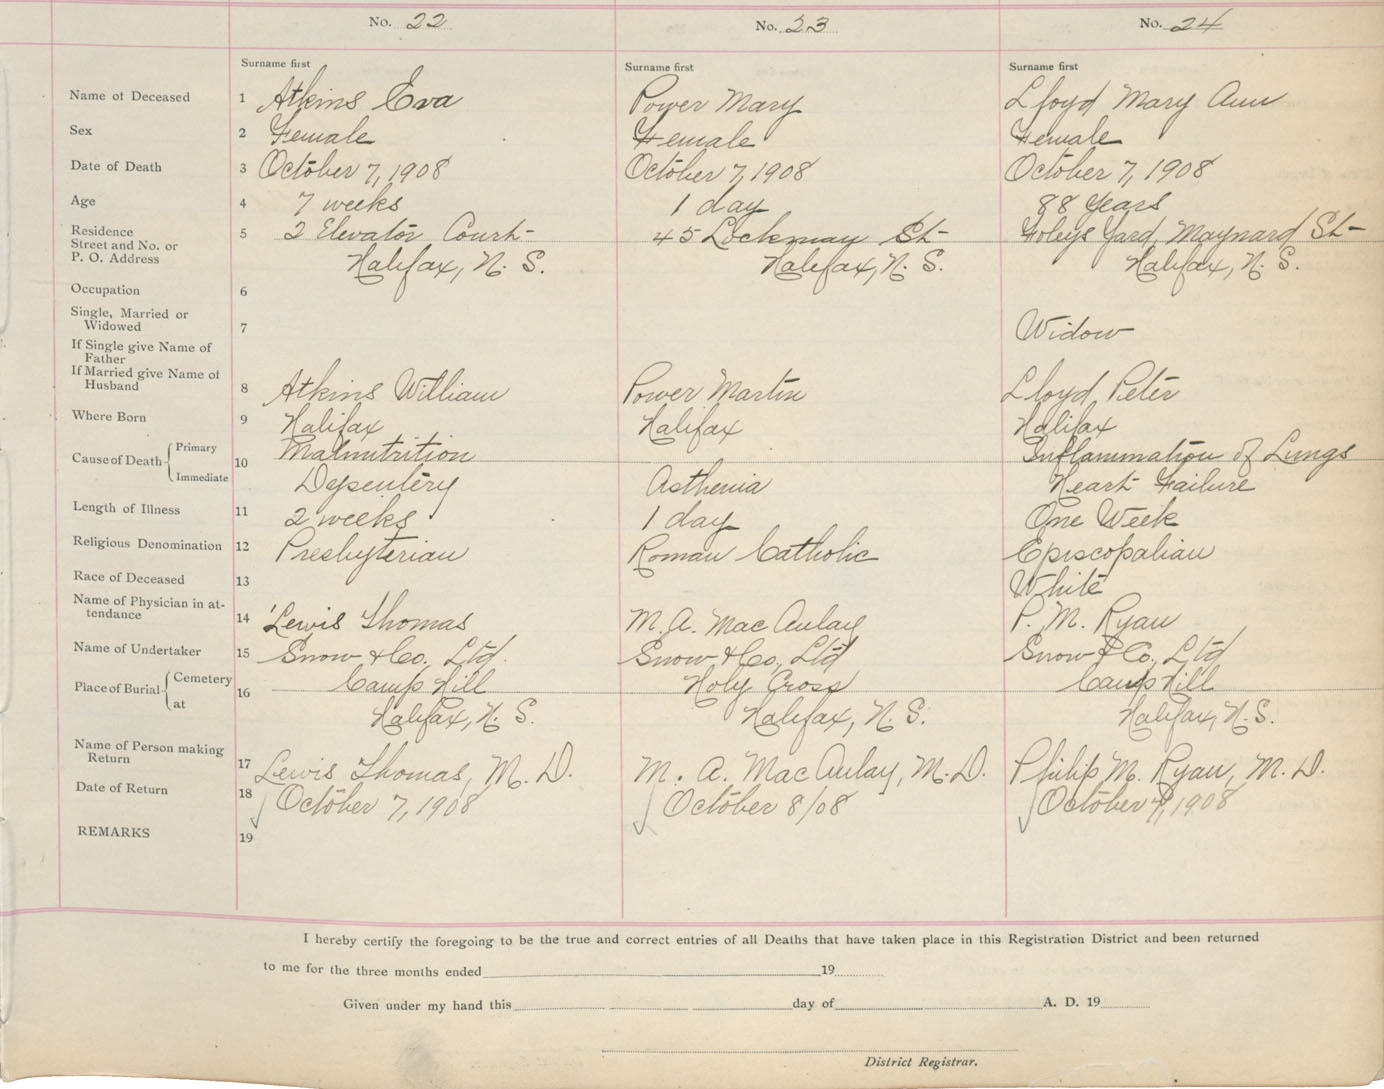 No. 22 No. 23 No. 24
Surname first Surname first Surname first
Name of Deceased 1 Atkins Eva Power Mary Lloyd Mary Ann
Sex 2 Female Female Female
Date of Death 3 October 7, 1908 October 7, 1908 October 7, 1908
Age 4 7 weeks 1 day 88 Years
Residence
Street and No. or 5 2 Elevator Court 45 Lockman St Foleys Yard, Maynard St
P. O. Address Halifax, N. S. Halifax, N. S. Halifax, N. S.
Occupation 6
Single, Married or
Widowed 7 Widow
If Single give Name of
Father
If Married give Name of
Husband 8 Atkins William Power Martin Lloyd, Peter
Where Born 9 Halifax Halifax Halifax
Cause of Death Primary 10 Malnutrition Inflammation of Lungs
Immediate Dysentery Asthenia Heart Failure
Length of Illness 11 2 weeks 1 day One Week
Religious Denomination 12 Presbyterian Roman Catholic Episcopalian
Race of Deceased 13 White
Name of Physician in at-
tendance 14 Lewis Thomas M. A. MacAulay P. M. Ryan
Name of Undertaker 15 Snow & Co., Ltd. Snow & Co., Ltd Snow & Co., Ltd
Place of Burial Cemetery 16 Camp Hill Holy Cross Camp Hill
at Halifax, N. S. Halifax, N. S. Halifax, N. S.
Name of Person making
Return 17 Lewis Thomas, M. D. M. A. MacAulay, M. D. Philip M. Ryan, M. D.
Date of Return 18 October 7, 1908 October 8/08 October 7, 1908
REMARKS 19
I hereby certify the foregoing to be the true and correct entries of all Deaths that have taken place in this Registration District and been returned
to me for the three months ended 19
Given under my hand this day of A. D. 19
District Registrar.